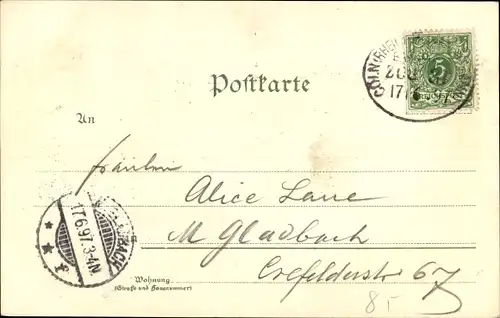 Postkarte
An
Fräulein
Alice Laue
M Gladbach
Crefelderstr 67
Wohnung
(Straße und Hausnummer)
5
17/6 97
17.6.97.3-4N
85